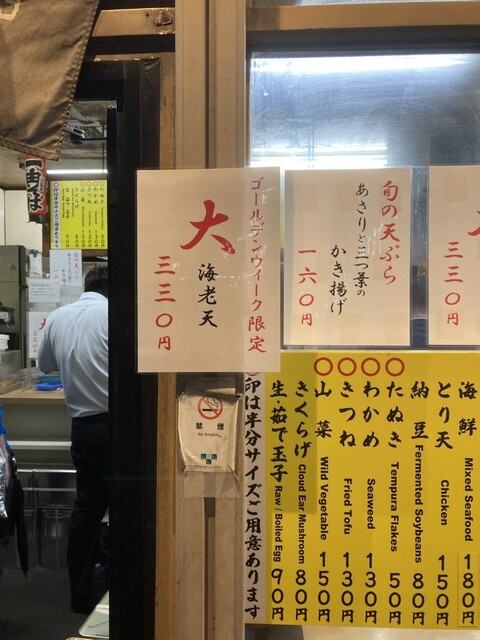 ゴールデンウィーク限定
大
海老天
三三〇円
旬の天ぷら
あさりと三つ葉の
かき揚げ
一六〇円
三三〇円
禁煙
No Smoking
海鮮 Mixed Seafood 180円
とり天 Chicken 150円
納豆 Fermented Soybeans 80円
〇たぬき Tempura Flakes 50円
〇わかめ Seaweed 130円
〇きつね Fried Tofu 130円
〇山菜 Wild Vegetable 150円
きくらげ Cloud Ear Mushroom 80円
生茹で玉子 Raw / Boiled Egg 90円
〇印は半分サイズご用意あります